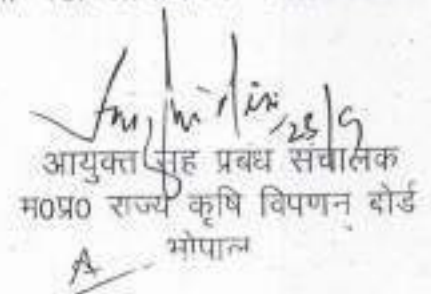 23/9
आयुक्त सह प्रबंध संचालक
म0प्र0 राज्य कृषि विपणन बोर्ड
भोपाल